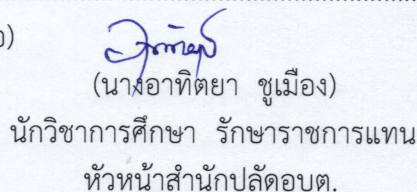 อ)
(นางอาทิตยา ชูเมือง)
นักวิชาการศึกษา รักษาราชการแทน
หัวหน้าสำนักปลัดอบต.